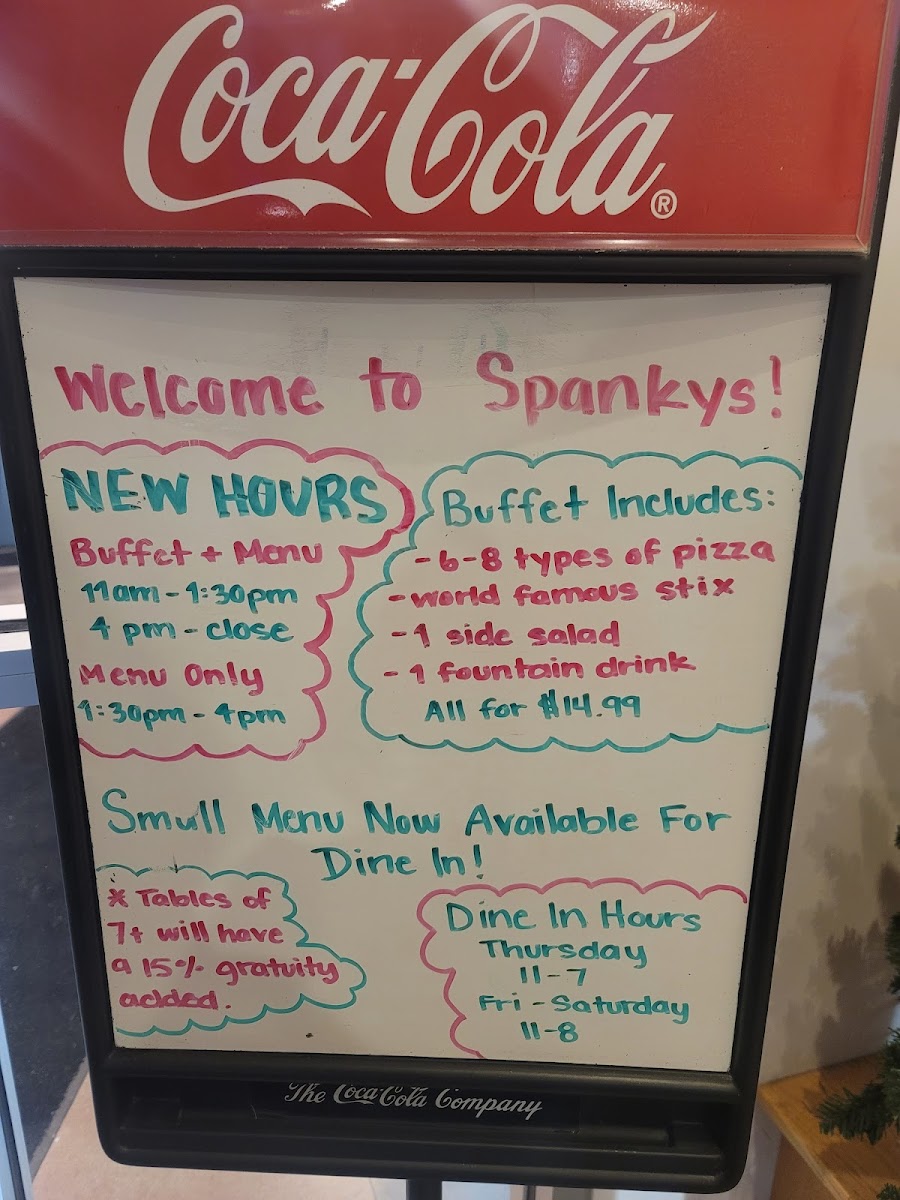 Coca-Cola®
Welcome to Spankys!
NEW HOURS
Buffet + Menu
11am - 1:30pm
4 pm - close
Menu Only
1:30pm - 4pm
Buffet Includes:
- 6-8 types of pizza
- world famous stix
- 1 side salad
- 1 fountain drink
All for $14.99
Small Menu Now Available For
Dine In!
* Tables of
7+ will have
a 15% gratuity
added.
Dine In Hours
Thursday
11-7
Fri - Saturday
11-8
The Coca-Cola Company